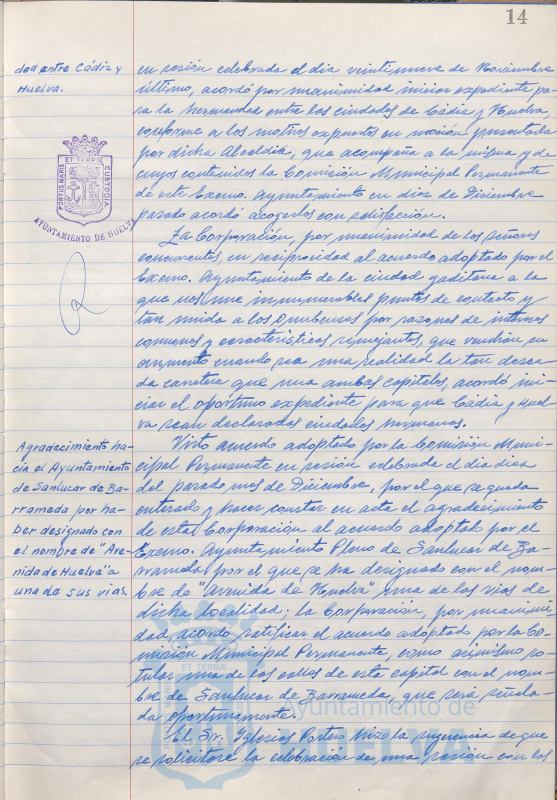 14
dad entre Cádiz y
Huelva.
PORTUS MARIS ET TERRAE CUSTODIA
AYUNTAMIENTO DE HUELVA
en sesión celebrada el día veintinueve de Noviembre
último, acordó por unanimidad iniciar expediente pa-
ra la hermandad entre las ciudades de Cádiz y Huelva
conforme a los motivos expuestos en moción presentada
por dicha Alcaldía, que acompaña a la misma y de
cuyos contenidos la Comisión Municipal Permanente
de este Excmo. Ayuntamiento en diez de Diciembre
pasado acordó acogerlos con satisfacción.
La Corporación, por unanimidad de los señores
concurrentes, en reciprocidad al acuerdo adoptado por el
Excmo. Ayuntamiento de la ciudad gaditana a la
que nos une innumerables puntos de contacto y
tan unida a los Onubenses por razones de intereses
comunes y características semejantes, que vendrán en
aumento cuando sea una realidad la tan desea-
da carretera que una ambas capitales, acordó ini-
ciar el oportuno expediente para que Cádiz y Huel-
va sean declaradas ciudades hermanas.
Agradecimiento ha-
cia el Ayuntamiento
de Sanlucar de Ba-
rrameda por ha-
ber designado con
el nombre de "Ave-
nida de Huelva" a
una de sus vias.
Visto acuerdo adoptado por la Comisión Muni-
cipal Permanente en sesión celebrada el día diez
del pasado mes de Diciembre, por el que se queda
enterado y hacer constar en acta el agradecimiento
de esta Corporación al acuerdo adoptado por el
Excmo. Ayuntamiento Pleno de Sanlucar de Ba-
rrameda por el que se ha designado con el nom-
bre de "Avenida de Huelva" una de las vias de
dicha localidad; la Corporación, por unanimi-
dad, acordó ratificar el acuerdo adoptado por la Co-
misión Municipal Permanente, como asimismo ro-
tular una de las calles de esta capital con el nom-
bre de Sanlucar de Barrameda, que será señala-
da oportunamente.
El Sr. Iglesias Portero hizo la sugerencia de que
se solicitase la celebración de una sesión con los
ET TERRAE
Ayuntamiento de
HUELVA